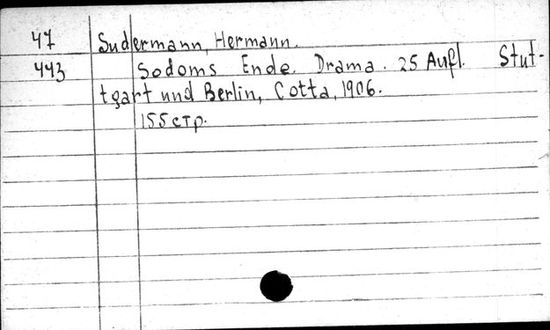 47 Sudermann, Hermann.
443 Sodoms Ende. Drama. 25 Aufl. Stut-
tgart und Berlin, Cotta, 1906.
155 стр.